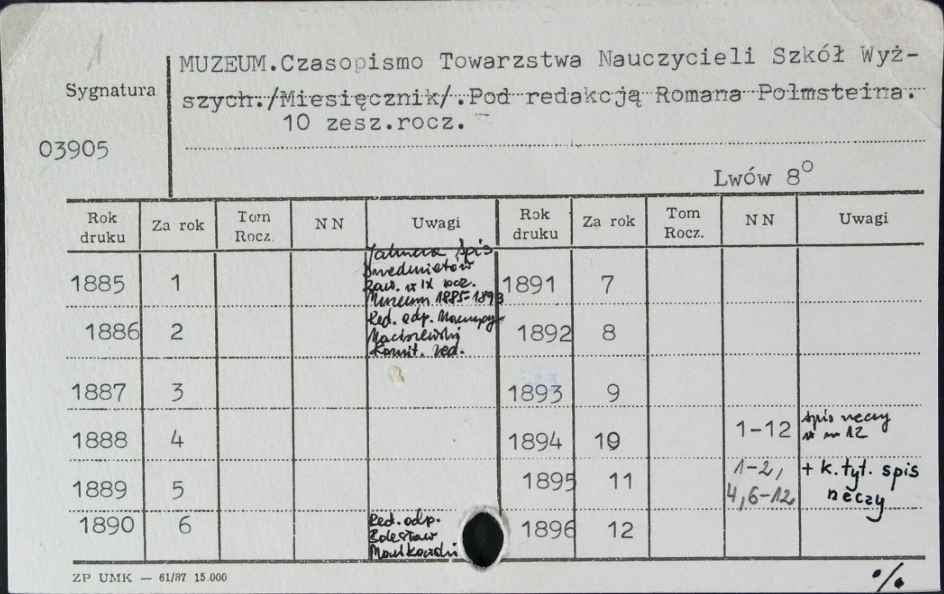 MUZEUM.Czasopismo Towarzstwa Nauczycieli Szkół Wyż-
Sygnatura
szych./Miesięcznik/.Pod redakcją Romana Polmsteina.
10 zesz.rocz.
03905
Lwów 8°
Rok druku Za rok Tom Rocz. NN Uwagi Rok druku Za rok Tom Rocz. NN Uwagi
1885 1 spis
przedmiotów
zaw. w IX rocz.
Muzeum 1885-1893 1891 7
1886 2 Red. odp.
Komit. red. 1892 8
1887 3 1893 9
1888 4 1894 10 1-12 spis rzeczy
w nr 12
1889 5 1895 11 1-2,
4,6-12 + k. tyt. spis
rzeczy
1890 6 Red. odp.
1896 12
ZP UMK — 61/87 15.000
•/•